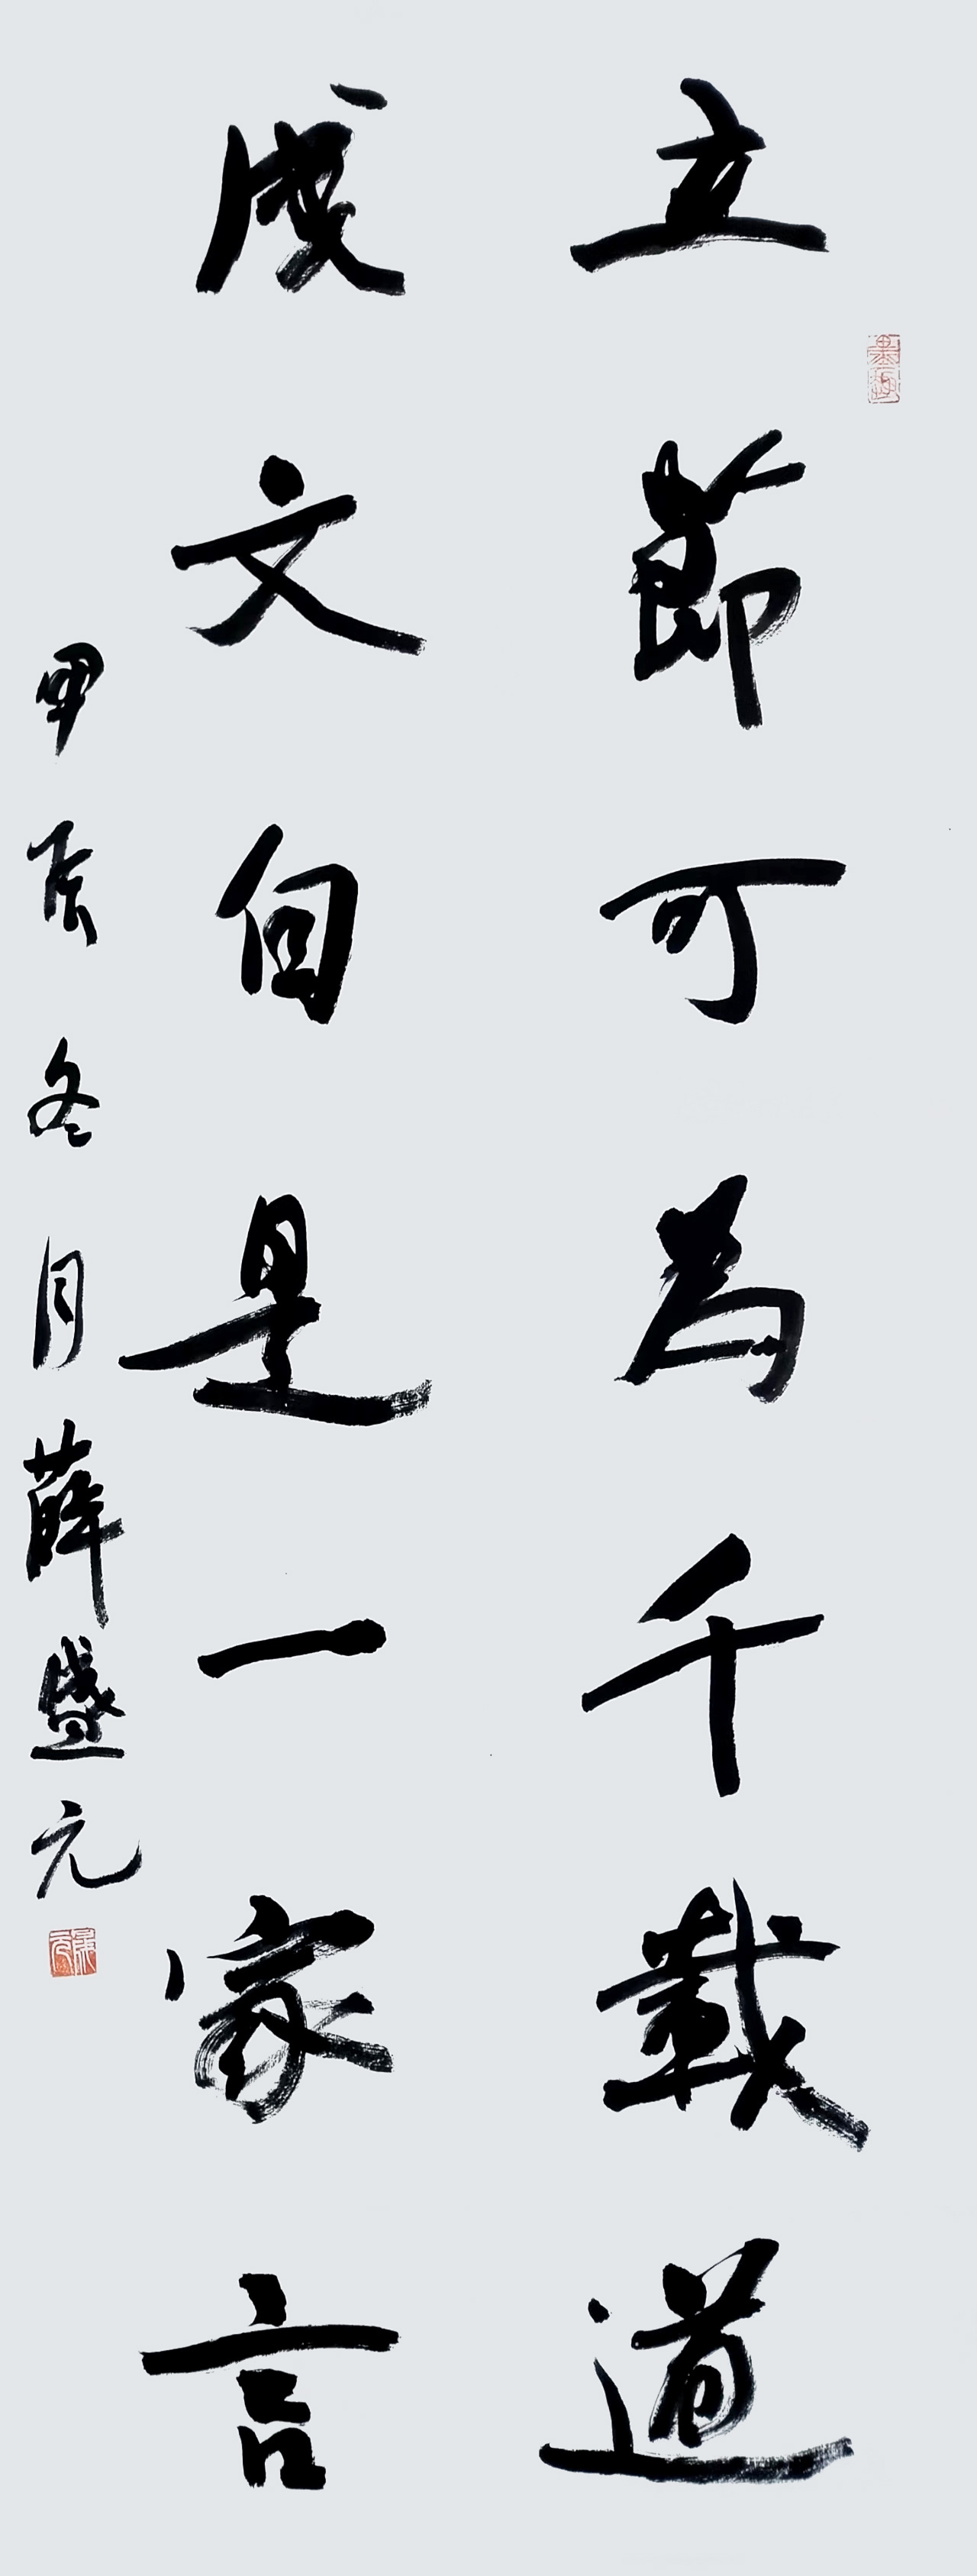 立節可為千載道
成文自是一家言
甲辰冬月薛盛元
墨趣